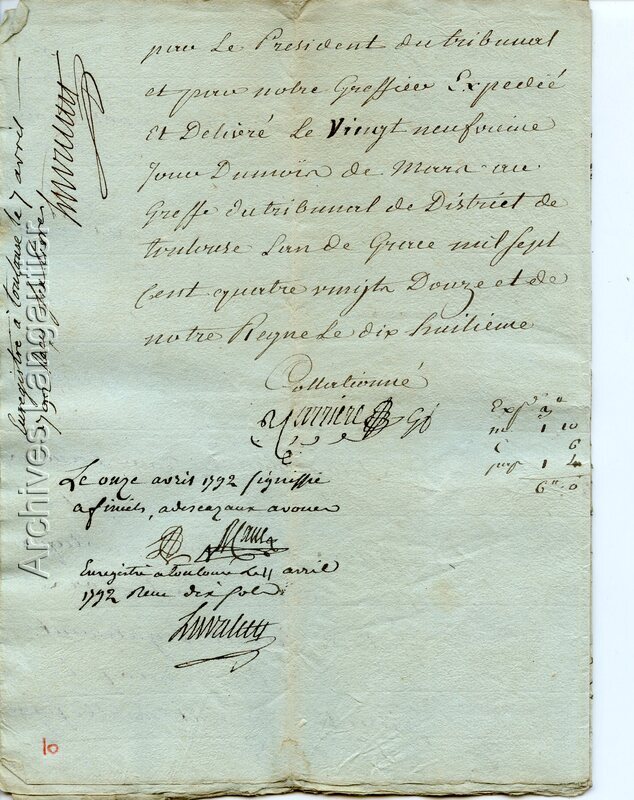 par Le President du tribunal
et par notre Greffier Expedié
Et Delivré Le Vingt neufvieme
Jour Dumois de Mars au
Greffe du tribunal de District de
toulouse Lan de Grace mil Sept
Cent quatre vingts Douze et de
notre Regne Le dix huitieme
Collationné
Carriere Gf
3"
1 10
6
1 4
6" 0
Le onze avril 1792 signiffié
avoué
Enregistré a toulouse Le 11 avril
1792 Reçu dix sols
Enregistré à toulouse le 7 avril
Archives Langatier
10